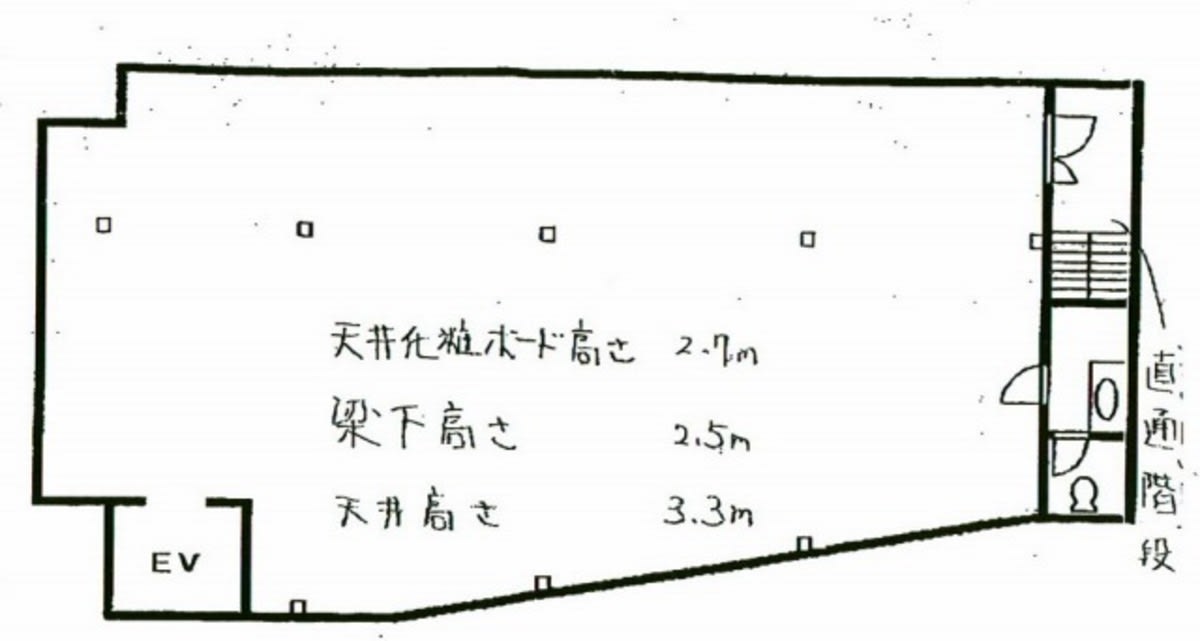 天井化粧ボード高さ 2.7m
梁下高さ 2.5m
天井高さ 3.3m
EV
直通階段